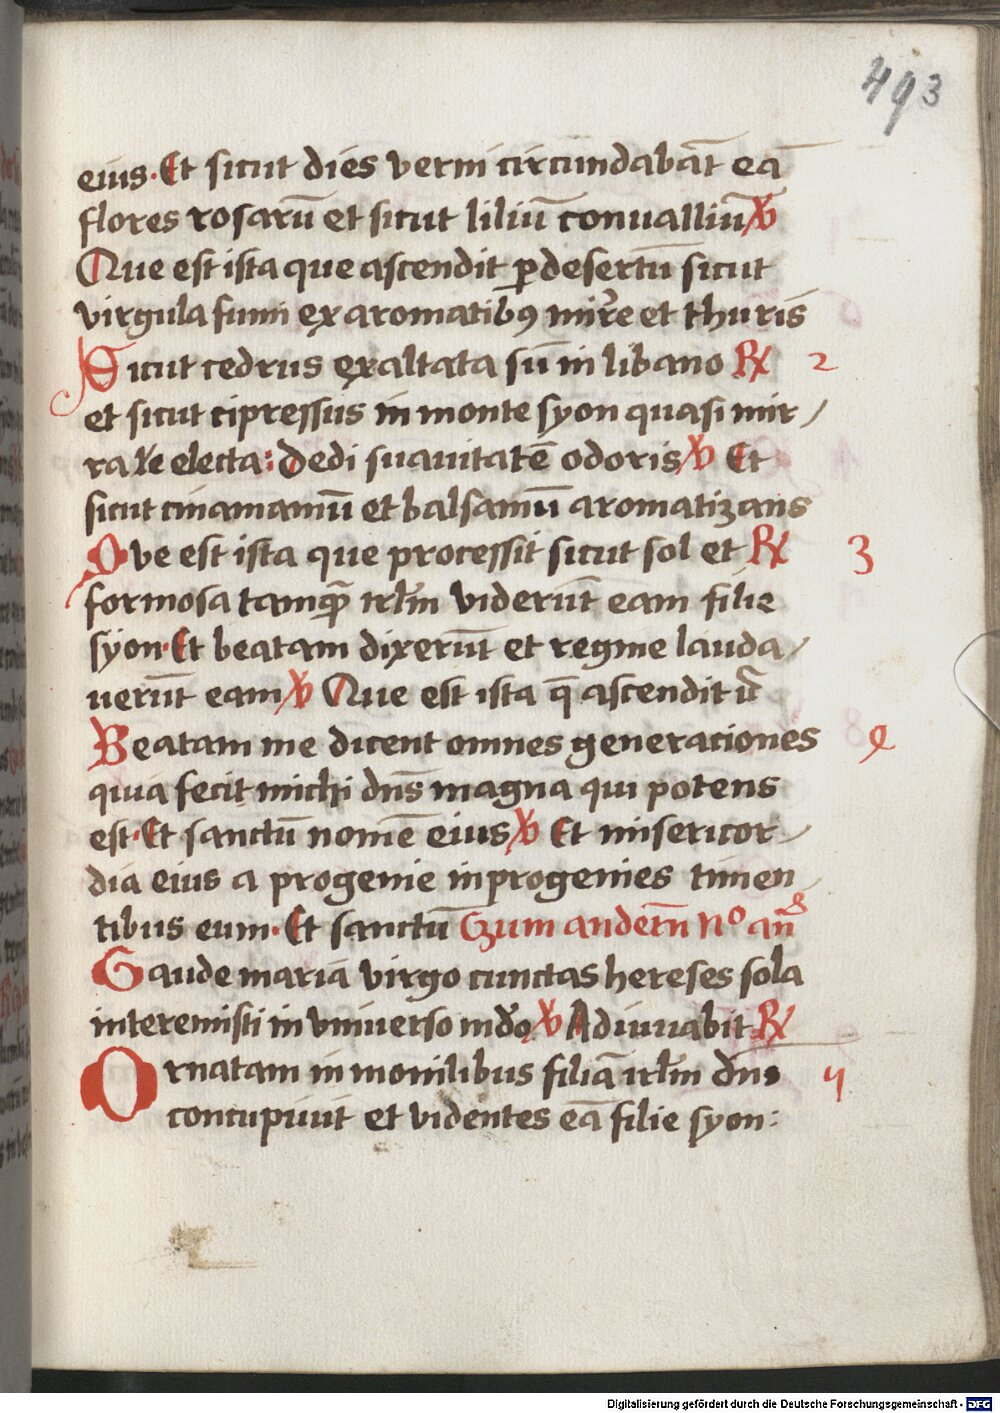 493
eius· Et sicut dies verni circundabāt eā
flores rosarū et sicut liliū conualliū ℣
Que est ista que ascendit ꝑ desertū sicut
virgula fumi ex aromatibꝯ mirre et thuris
Sicut cedrus exaltata sū in libano ℟ 2
et sicut cipressus in monte syon quasi mir/
ra electa: Dedi suauitatē odoris ℣ Et
sicut cinamamū et balsamū aromatizans
Que est ista que processit sicut sol et ℟ 3
formosa tamq̄ irlm̄ viderūt eam filie
syon· Et beatam dixerūt et regine lauda/
uerūt eam ℣ Que est ista q̄ ascendit
Beatam me dicent omnes generaciones
quia fecit michi dn̄s magna qui potens
est· Et sanctū nomē eius ℣ Et misericor/
dia eius a progenie in progenies timen/
tibus eum· Et sanctū Zum andern Nᵒ
Gaude maria virgo cunctas hereses sola
interemisti in vniuerso mdo ℣ Adiuuabit ℟
Ornatam in monilibus filiā irlm̄ dns
concupiuit et videntes eā filie syon:
Digitalisierung gefördert durch die Deutsche Forschungsgemeinschaft - DFG